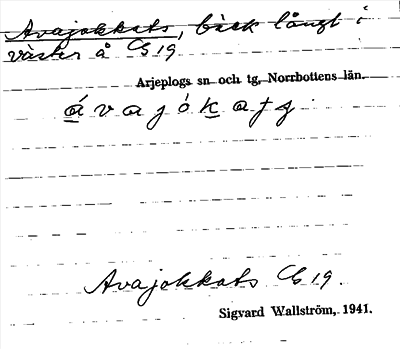 Avajokkats, bäck långt i
väster å C819
Arjeplogs sn och tg, Norrbottens län.
á v a j ó k a t s
Avajokkats C819.
Sigvard Wallström, 1941.